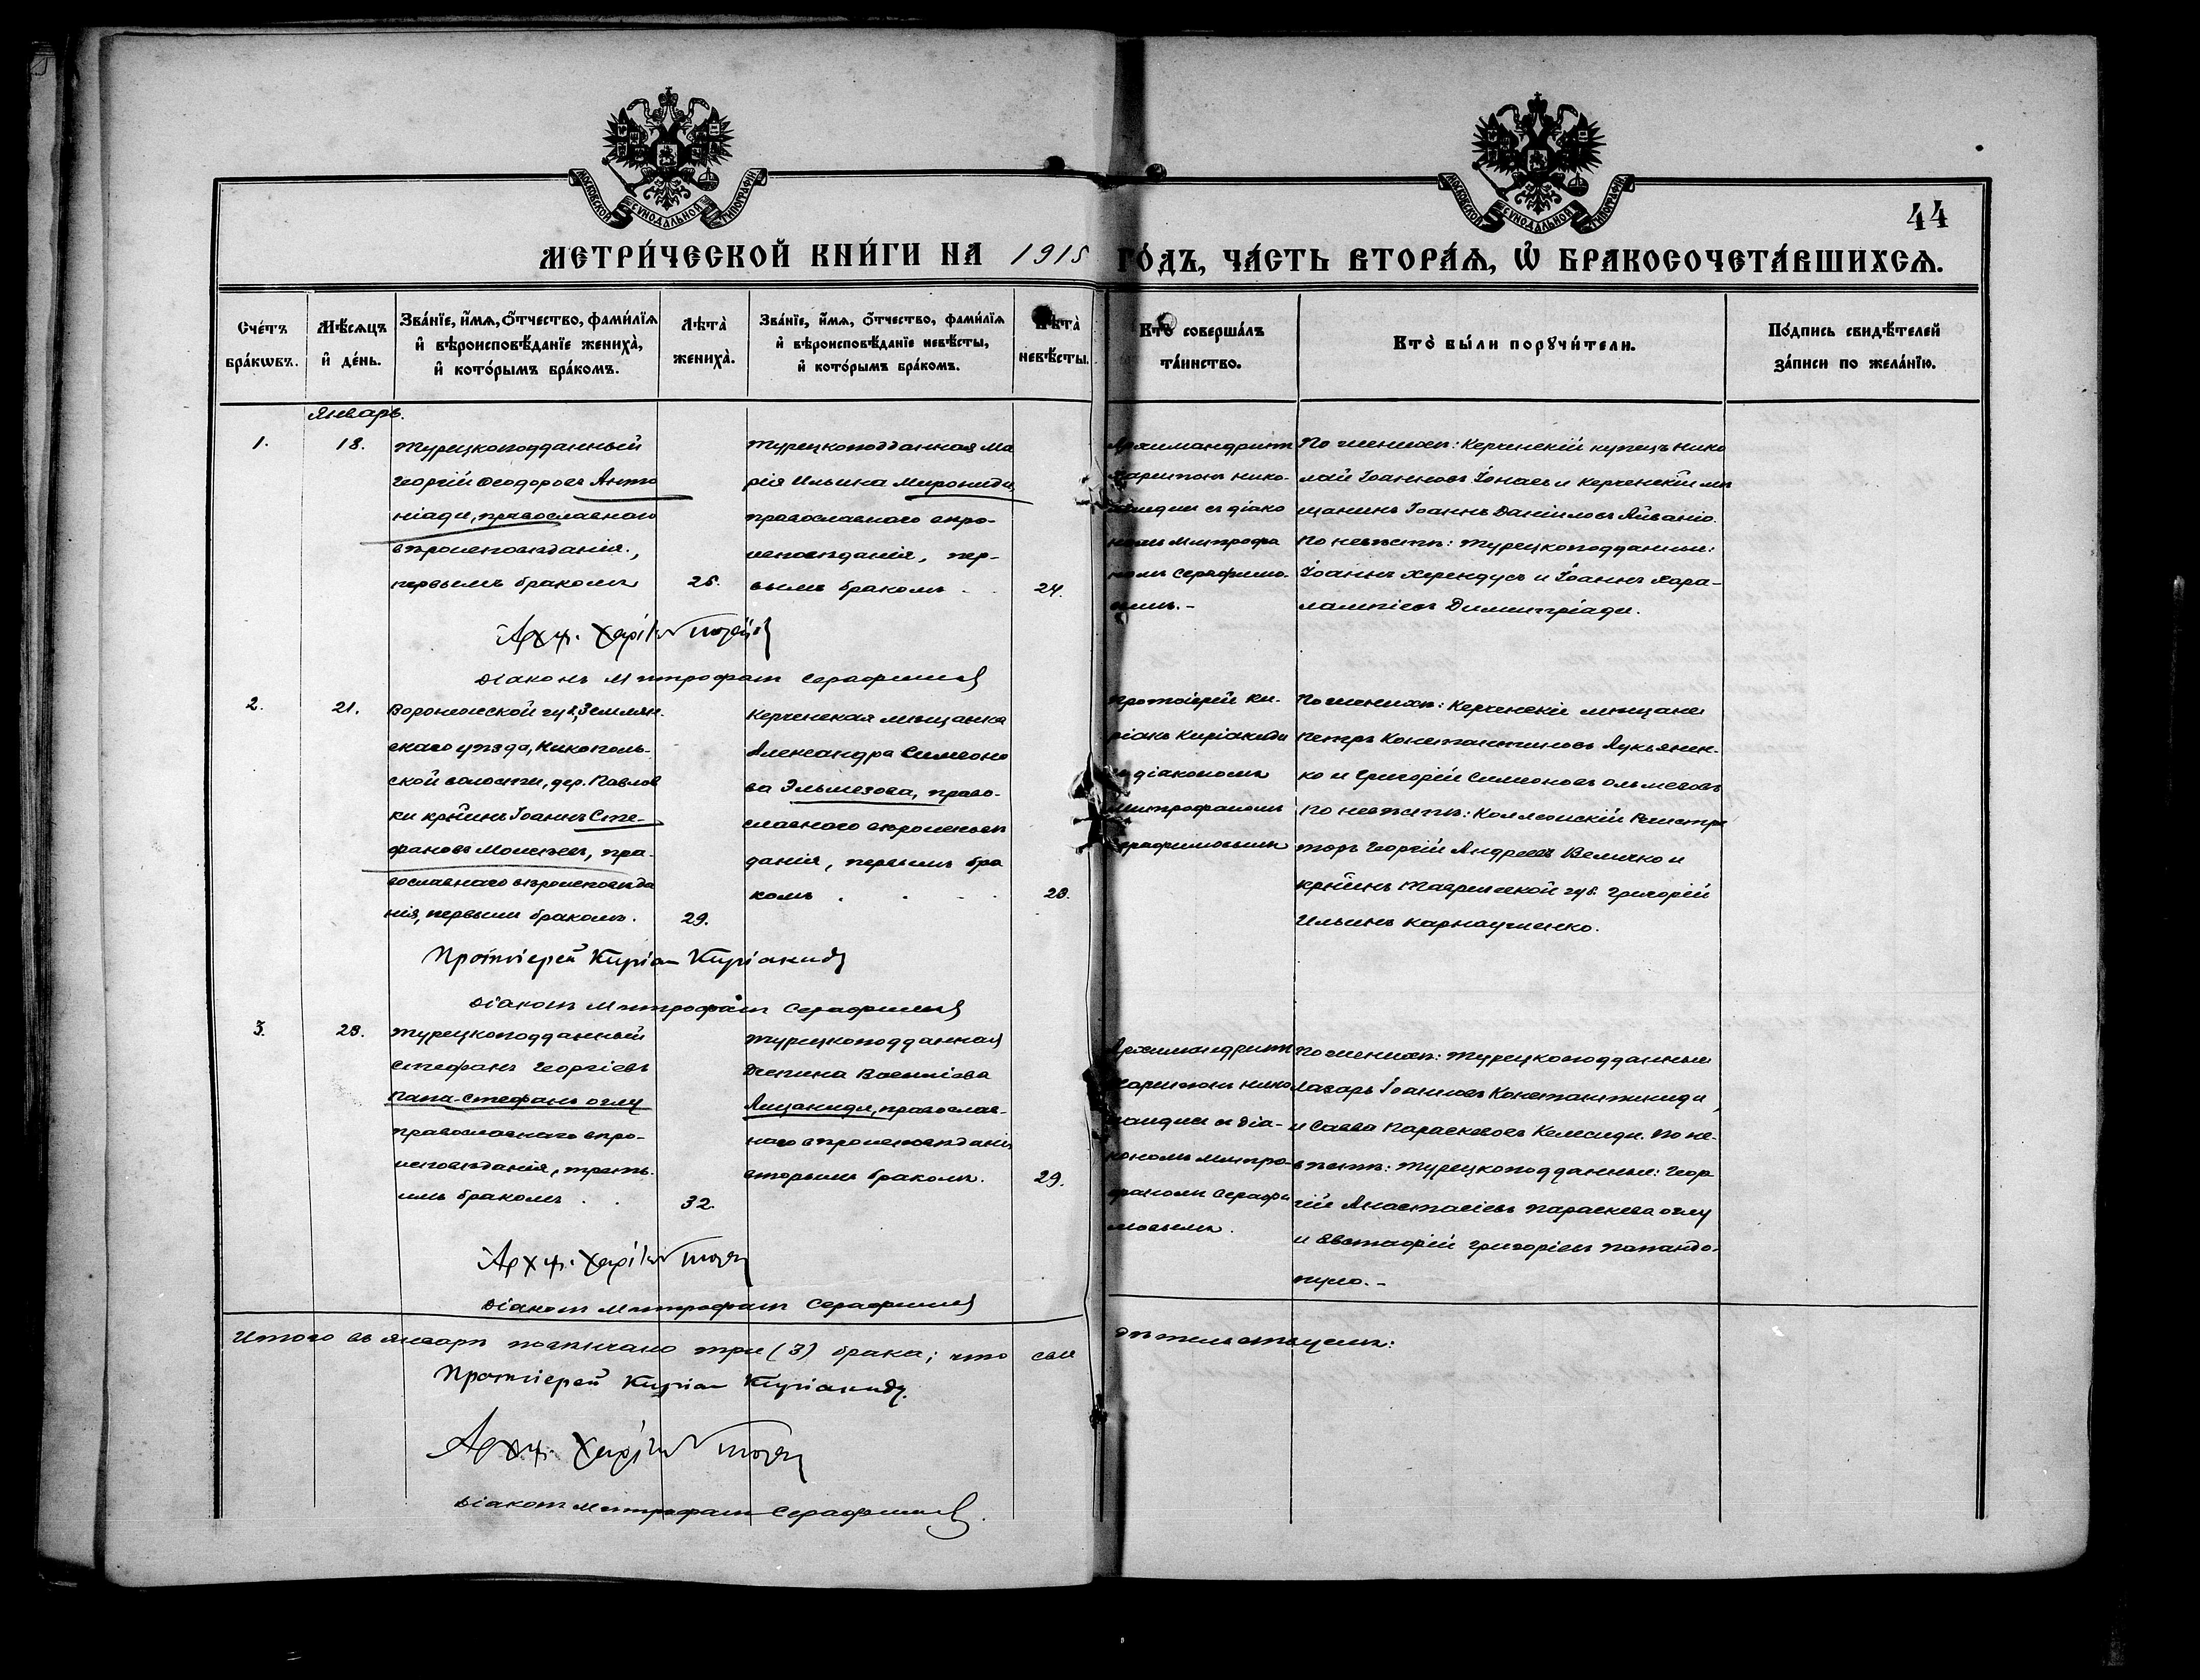 МОСКОВСКОЙ СѴНОДАЛЬНОЙ ТИПОГРАФІИ
МОСКОВСКОЙ СѴНОДАЛЬНОЙ ТИПОГРАФІИ
44
МЕТРИ́ЧЕСКОЙ КНИ́ГИ НА 1915 ГО́ДЪ, ЧА́СТЬ ВТОРА́Ѧ, Ѡ҆ БРАКОСОЧЕТА́ВШИХСѦ.
Сче́тъ бра́кѡвъ.
Мѣ́сѧцъ и҆ де́нь.
Зва́нїе, и҆́мѧ, ѻ҆́тчество, фами́лїѧ
и҆ вѣроисповѣ́данїе жениха̀,
и҆ кото́рымъ бра́комъ.
Лѣта̀ жениха̀.
Зва́нїе, и҆́мѧ, ѻ҆́тчество, фами́лїѧ
и҆ вѣроисповѣ́данїе невѣ́сты,
и҆ кото́рымъ бра́комъ.
Лѣта̀ невѣ́сты.
Кто̀ соверша́лъ та́инство.
Кто̀ бы́ли порꙋчи́тели.
По́дпись свидѣ́телей за́писи по жела́нїю.
Январь.
1.
18.
Турецкоподданный
Георгій Феодоровъ Анто
ніади, православнаго
вѣроисповѣданія,
первымъ бракомъ
25.
Турецкоподданная Ма
рія Ильина Мирониди,
православнаго вѣро-
исповѣданія, пер-
вымъ бракомъ
24.
Архимандритъ
Харитонъ Нико-
съ діако
номъ Митрофа
номъ Серафимо-
вымъ.-
По женихѣ: Керченскій купецъ Нико
лай Іоанновъ Іонаевъ и Керченскій мѣ
щанинъ Іоаннъ Даніиловъ Айваніо.
По невѣстѣ: Турецкоподданные:
Іоаннъ Херендусъ и Іоаннъ Хара-
лампіевъ Димитріади.
Діаконъ Митрофанъ Серафимовъ
2.
21.
Воронежской губ, Землян-
скаго уѣзда, Никополь-
ской волости, дер. Павлов
ки кр҃нинъ Іоаннъ Сте-
фановъ Моисеевъ, пра-
вославнаго вѣроисповѣда
нія, первымъ бракомъ.
29.
Керченская мѣщанка
Александра Симеоно
ва Эльмезова, право-
славнаго вѣроисповѣ
данія, первымъ бра
комъ
28.
Протоіерей Ки-
ріакъ Киріакиди
съ діакономъ
Митрофаномъ
Серафимовымъ
По женихѣ: Керченскіе мѣщане
Петръ Константиновъ Лукьянен-
ко и Григорій Симеоновъ Ольмезовъ
По невѣстѣ: Коллежскій Регистра
торъ Георгій Андреевъ Величко и
кр҃нинъ Таврической губ. Григорій
Ильинъ Карнаушенко.
Протоіерей Киріакъ Киріакиди
Діаконъ Митрофанъ Серафимовъ
3.
28.
Турецкоподданный
Стефанъ Георгіевъ
Папа-Стефанъ оглу
православнаго вѣро-
исповѣданія, треть-
имъ бракомъ
32.
Турецкоподданная
Василіева
православ-
наго вѣроисповѣданія
вторымъ бракомъ.
29.
Архимандритъ
Харитонъ Нико
съ діа-
кономъ Митро-
фаномъ Серафи
мовымъ.
По женихѣ: Турецкоподданные
Лазарь Іоанновъ Константиниди,
и Савва Параскевовъ Келесиди. По не-
вѣстѣ: Турецкоподданные: Геор
гій Анастасіевъ Параскева оглу
и Евстафій Григоріевъ Папандо-
пуло.-
Діаконъ Митрофанъ Серафимовъ
Итого въ январѣ повѣнчано три (3) брака; что сви дѣтельствуемъ:
Протоіерей Киріакъ Киріакиди.
Діаконъ Митрофанъ Серафимовъ.